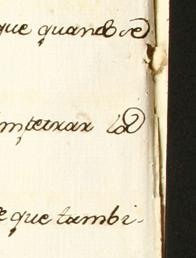 que quando se
impetrar la
e que tambi-